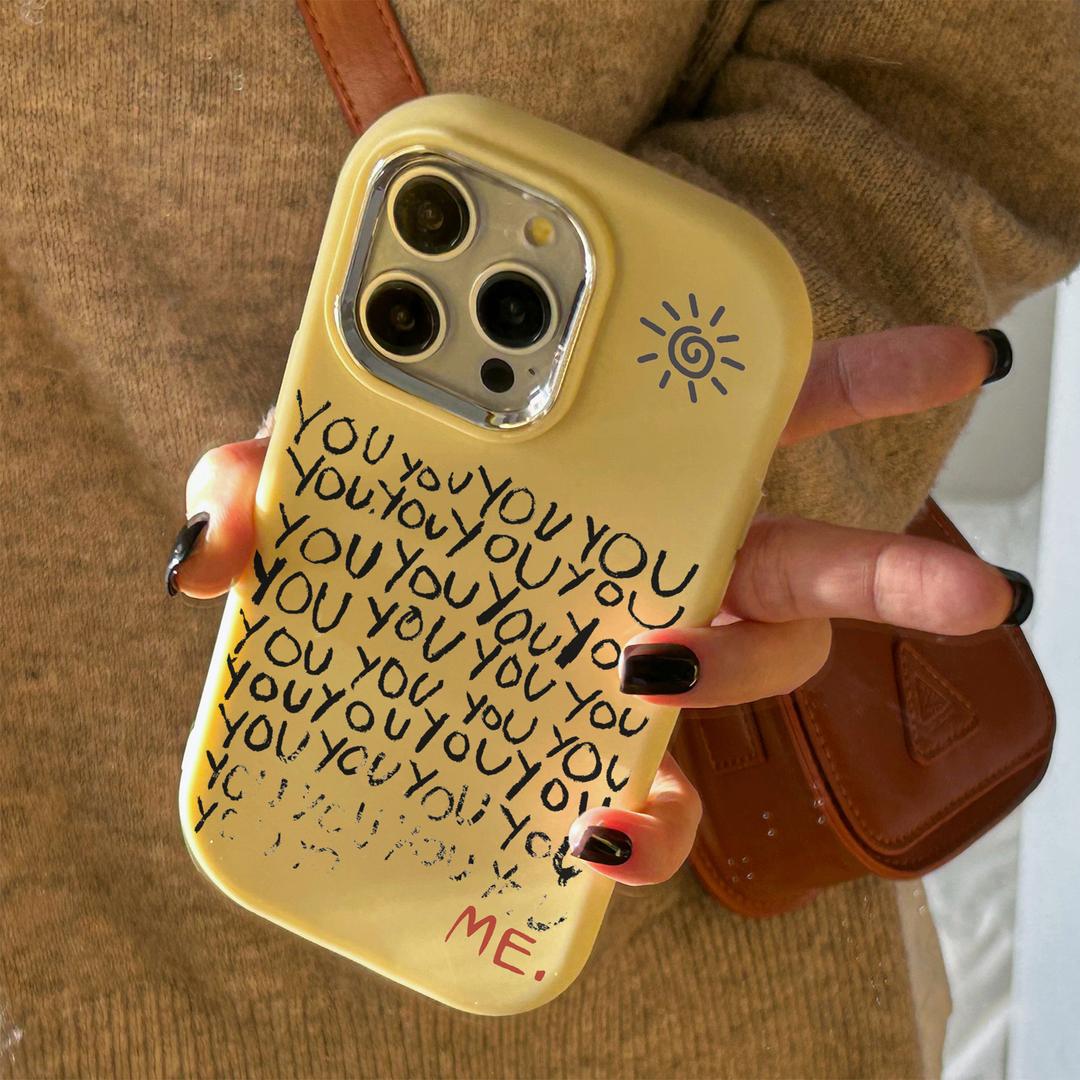 YOU YOU YOU YOU
YOU YOU YOU YOU
YOU YOU YOU YO
YOU YOU YOU YOU
YOU YOU YOU YOU
YOU YOU YOU YOU
YOU YOU YOU YOU
YOU YOU YOU
ME.